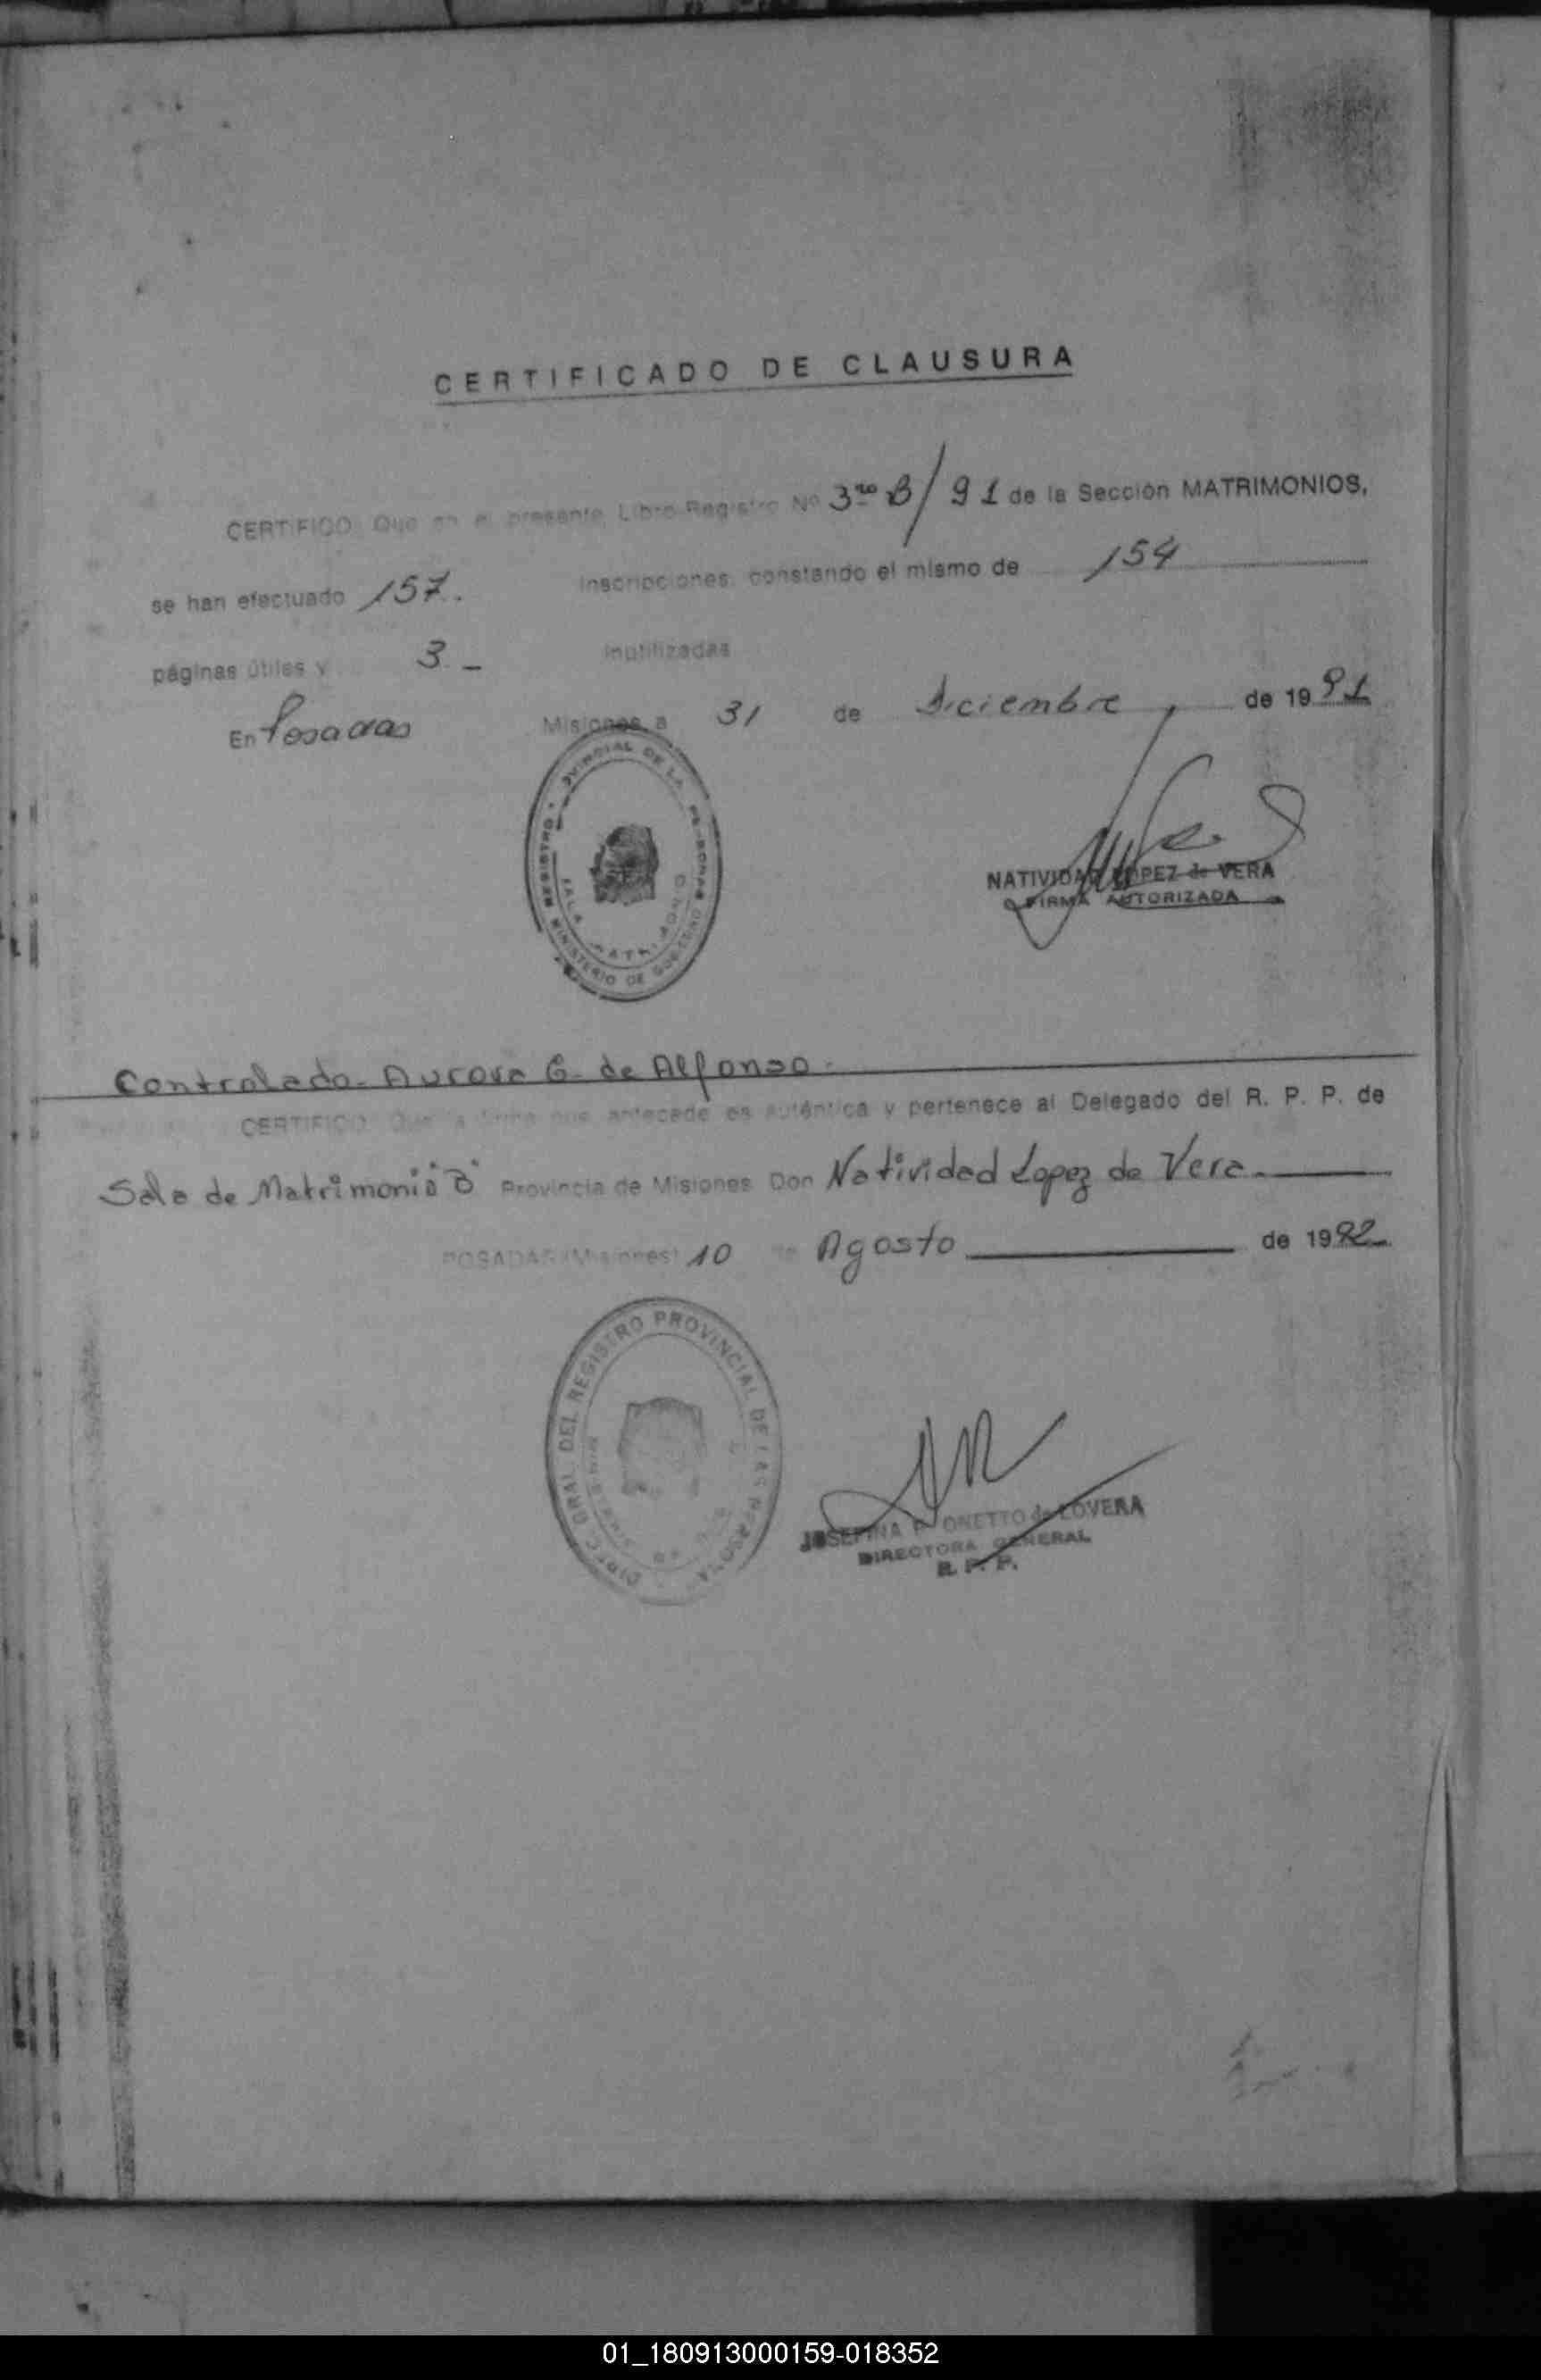 CERTIFICADO DE CLAUSURA
CERTIFICO: Que en el presente Libro-Registro Nº 3ro B/91 de la Sección MATRIMONIOS,
se han efectuado 157. inscripciones, constando el mismo de 154
páginas útiles y 3.- inutilizadas
En Posadas Misiones a 31 de Diciembre, de 1991
NATIVIDAD LOPEZ de VERA
FIRMA AUTORIZADA
REGISTRO PROVINCIAL DE LAS PERSONAS
MINISTERIO DE GOBIERNO
SALA MATRIMONIO
Controlado. Aurora G. de Alfonso.
CERTIFICO: Que la firma que antecede es auténtica y pertenece al Delegado del R. P. P. de
Sala de Matrimonio "B" Provincia de Misiones Don Natividad Lopez de Vera
POSADAS (Misiones) 10 de Agosto de 1992
DIREC. GRAL. DEL REGISTRO PROVINCIAL DE LAS PERSONAS
JOSEFINA P. ONETTO de LOVERA
DIRECTORA GENERAL
R. P. P.
01_180913000159-018352